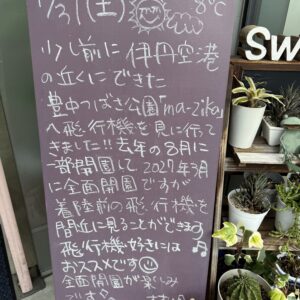 1/31(土) 8℃
少し前に伊丹空港
の近くにできた
豊中つばさ公園「ma-zika」
へ飛行機を見に行って
きました!! 去年の8月に
一部開園して、2027年3月
に全面開園ですが
着陸前の飛行機を
間近に見ることができます♫
飛行機好きには
おススメです
全面開園が楽しみ
です
SW